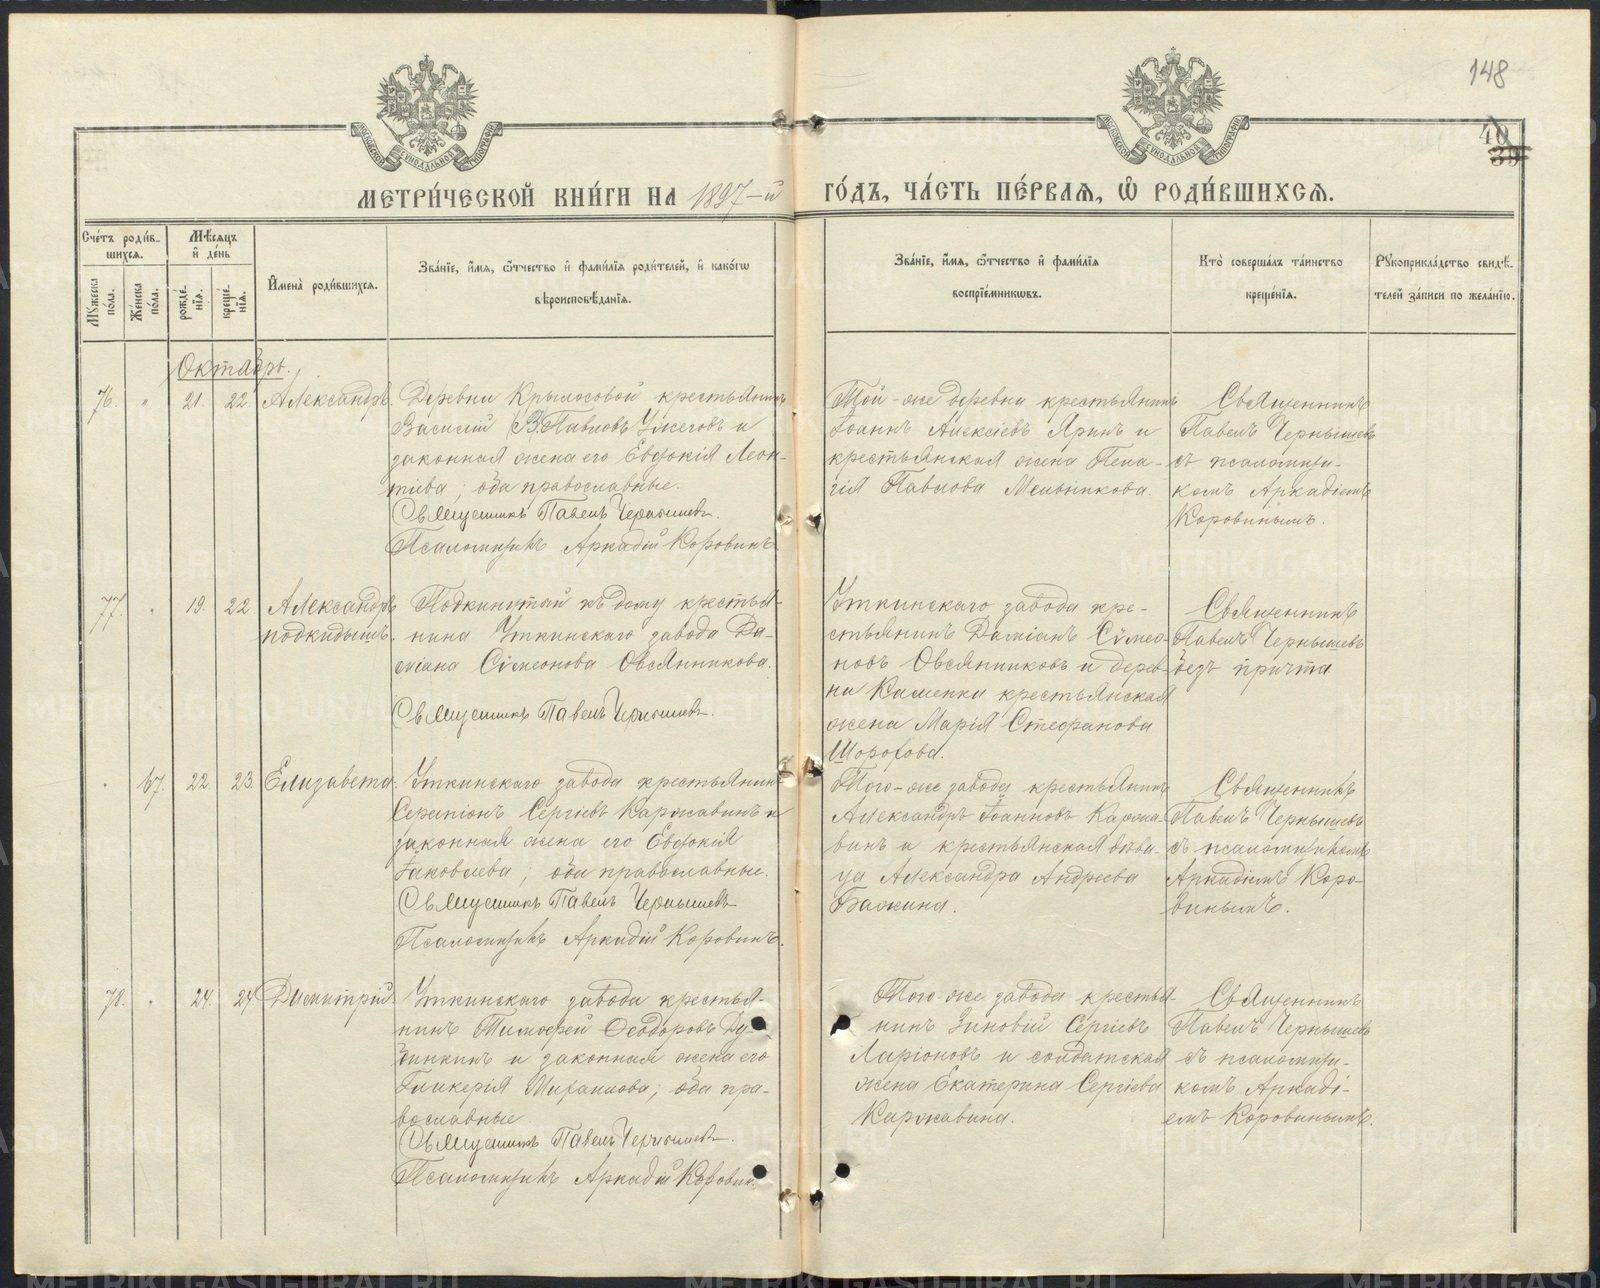 148
40
39
МЕТРИ́ЧЕСКОЙ КНИ́ГИ НА 1897-й ГО́ДЪ, ЧА́СТЬ ПЕ́РВАЯ, Ѽ РОДИ́ВШИХСЯ.
Сче́тъ роди́в-
шихся.
Мꙋ́жеска пола.
Же́нска по́ла.
Мѣ́сяцъ
и҆ де́нь
рожде́-
нїя.
креще́-
нїя.
И҆мена̀ роди́вшихся.
Зва́нїе, и҆́мя, ѻ҆́тчество и҆ фами́лїя роди́телей, и҆ како́гѡ
вѣроисповѣ́данїя.
Зва́нїе, и҆́мя, ѻ҆́тчество и҆ фами́лїя
воспрїе́мникѡвъ.
Кто̀ соверша́лъ та́инство
креще́нїя.
Рꙋкоприкла́дство свидѣ́-
телей за́писи по жела́нїю.
Октябрь.
76. " 21. 22. Александръ.
Деревни Крылосовой крестьянинъ
Василій Павловъ Ужеговъ и
законная жена его Евдокія Леон-
тіева; оба православные.
Священникъ Павелъ Чернышевъ.
Псаломщикъ Аркадій Коровинъ.
Той-же деревни крестьянинъ
Іоаннъ Алексіевъ Яринъ и
крестьянская жена Пела-
гія Павлова Мельникова.
Священникъ
Павелъ Чернышевъ
съ псаломщи-
комъ Аркадіемъ
Коровинымъ.
77. " 19. 22. Александръ
подкидышъ.
Подкинутый къ дому крестья-
нина Уткинскаго завода Да-
міана Сѷмеонова Овсянникова.
Священникъ Павелъ Чернышевъ.
Уткинскаго завода кре-
стьянинъ Даміанъ Сѷмео-
новъ Овсянниковъ и дерев-
ни Каменки крестьянская
жена Марія Стефанова
Шорохова.
Священникъ
Павелъ Чернышевъ
безъ причта
" 67. 22. 23. Елизавета.
Уткинскаго завода крестьянинъ
Серапіонъ Сергіевъ Каржавинъ и
законная жена его Евдокія
Іаковлева; оба православные.
Священникъ Павелъ Чернышевъ
Псаломщикъ Аркадій Коровинъ.
Того-же завода крестьянинъ
Александръ Іоанновъ Каржа-
винъ и крестьянская дѣви-
ца Александра Андреева
Бажина.
Священникъ
Павелъ Чернышевъ
съ псаломщикомъ
Аркадіемъ Коро-
винымъ.
78. " 24. 24. Димитрій.
Уткинскаго завода крестья-
нинъ Тимоѳей Ѳеодоровъ Ду-
бинкинъ и законная жена его
Гликерія Михаилова; оба пра-
вославные
Священникъ Павелъ Чернышевъ.
Псаломщикъ Аркадій Коровинъ.
Того-же завода крестья-
нинъ Зиновій Сергіевъ
Ларіоновъ и солдатская
жена Екатерина Сергіева
Каржавина.
Священникъ
Павелъ Чернышевъ
съ псаломщи-
комъ Аркаді-
емъ Коровинымъ.